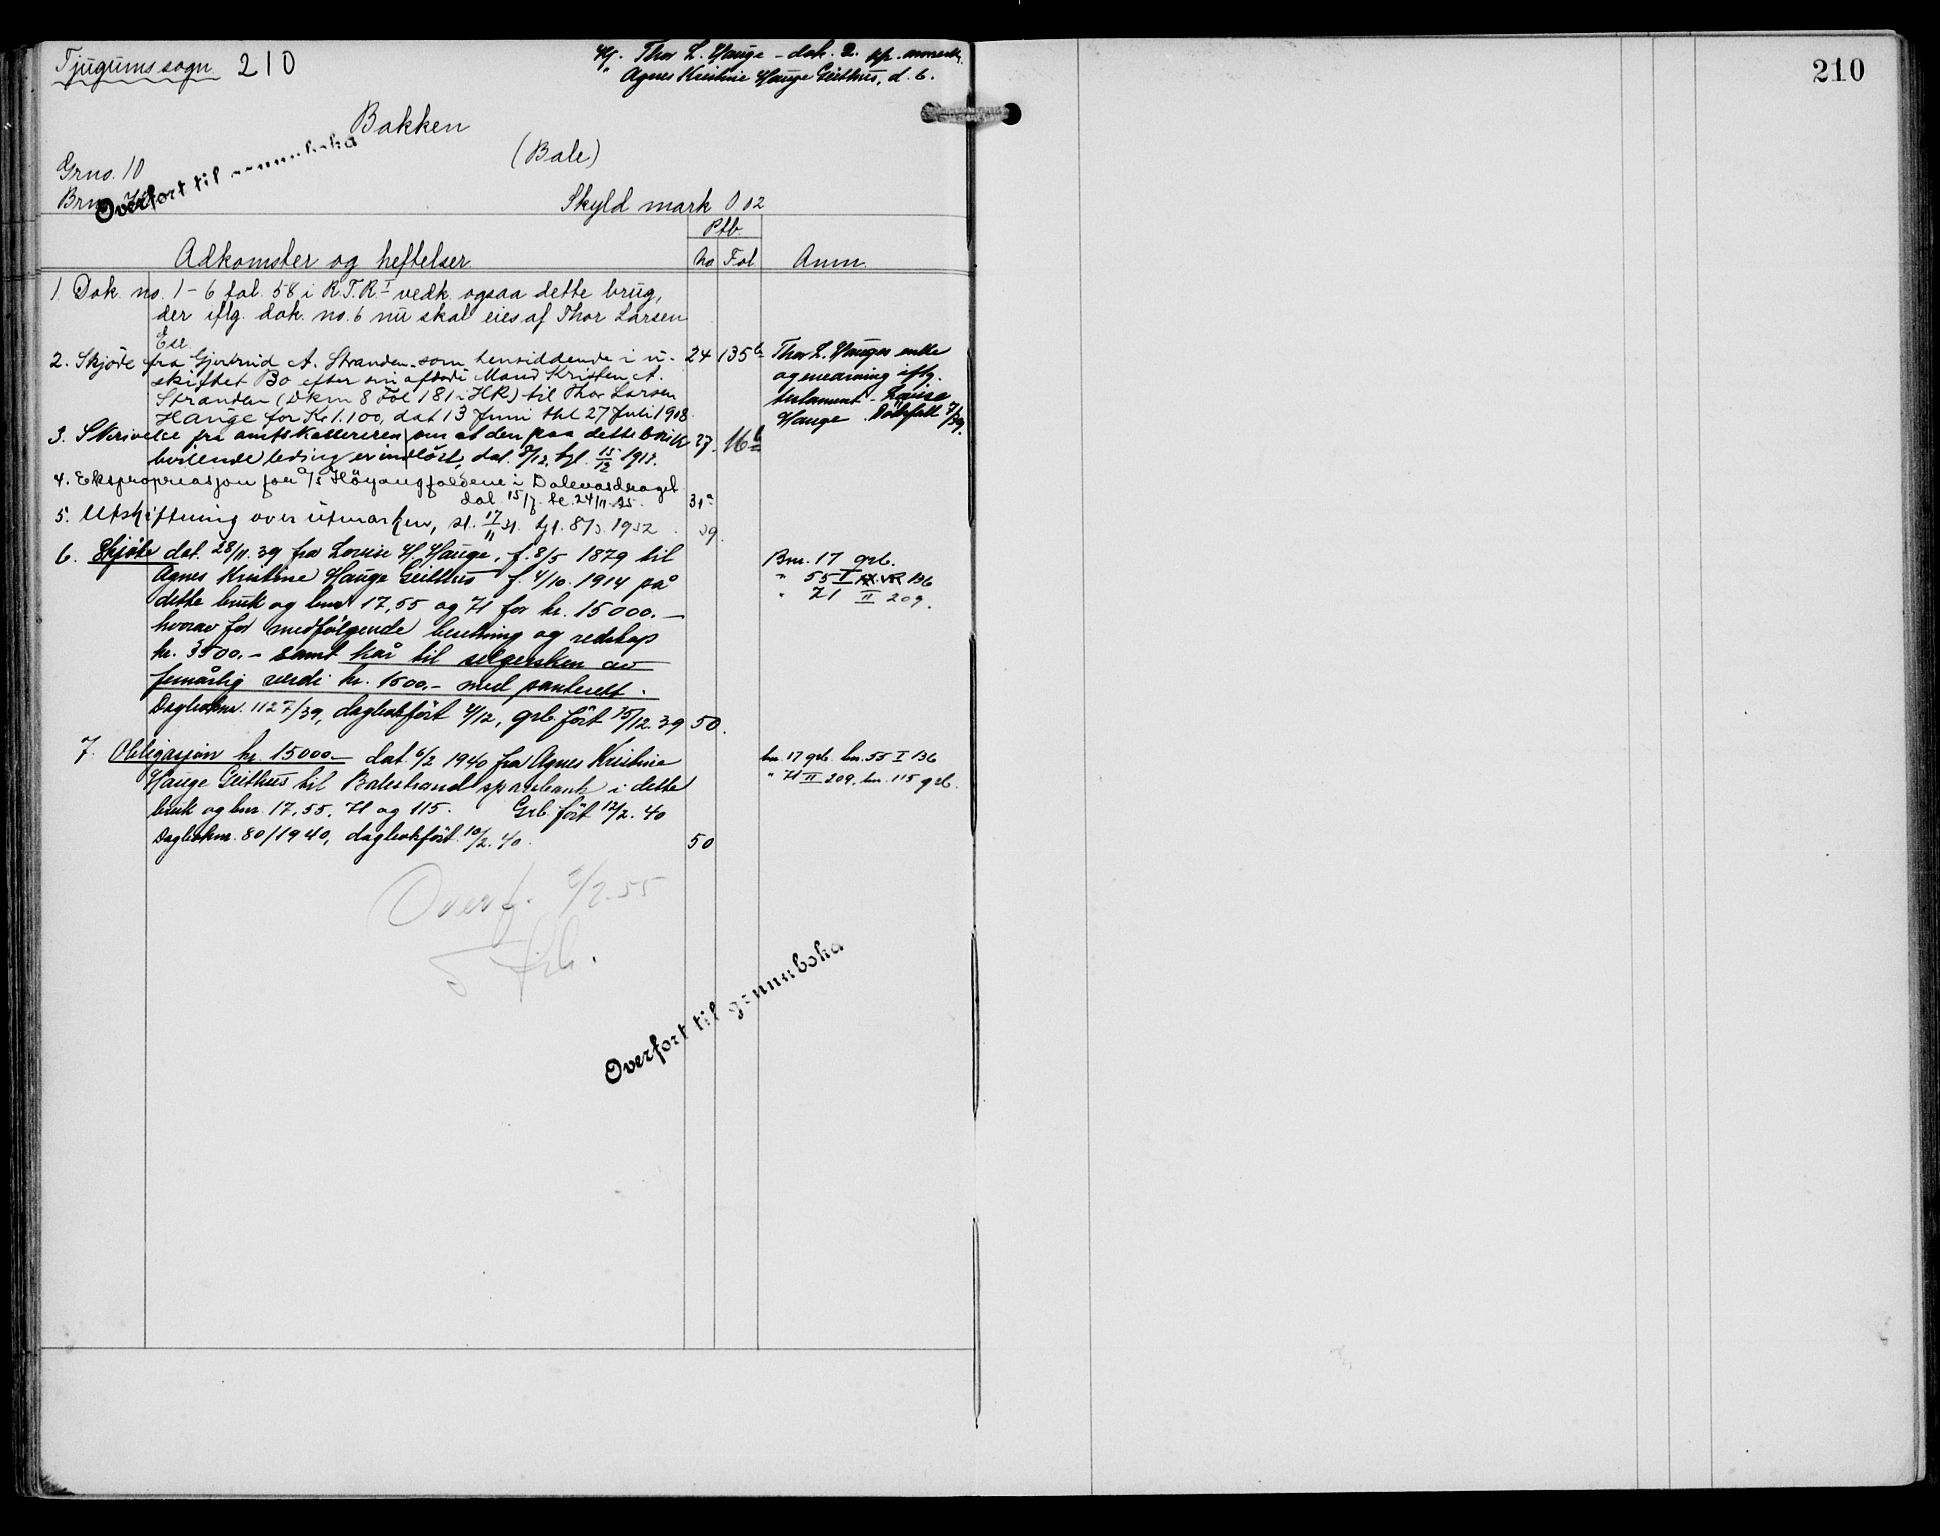 Tjugums sogn. 210
Hj. Thor L. Hauge - dok. 2.
" Agnes Kristine Hauge Geithus, d. 6.
210
Bakken
(Bale)
Grno. 10
Brno.
Overført til grunnboka
Skyld mark 0 02
Ptb.
Adkomster og heftelser
No Fol Anm.
1. Dok. no. 1-6 fol. 58 i R.T.R I vedk. ogsaa dette brug,
der iflg. dok. no. 6 nu skal eies af Thor Larsen
2. Skjøte fra Gjertrud A. Stranden som hensiddende i u- 24 135 b
skiftet Bo efter sin afdøde Mand Kristen A.
Stranden (Dkm 8 Fol 181 - HR) til Thor Larsen
Hauge for Kr 1.100, dat 13 Juni thl 27 Juli 1908.
Thor L. Hauges enke
og enearving iflg.
testament - Louise
Hauge.
3. Skrivelse fra amtskassereren om at den paa dette bruk 27. 16 b
hvilende leding er indløst, dat. 9/12, tgl. 15/12 1918.
4. Ekspropriasjon for A/S Høyangfaldene i Dalevasdraget
dat. 15/7 te. 24/11-25. 31 a
5. Utskiftning over utmarken, sl. 17/11 31. tgl. 8/3. 1932. 39.
6. Skjøte dat. 28/11.39 fra Louise H. Hauge, f. 8/5 1879 til
Agnes Kristine Hauge Geithus f. 4/10. 1914 på
dette bruk og bnr 17, 55 og 71 for kr. 15 000.-
hvorav for medfølgende besetning og redskap
kr. 3500.- samt kår til selgersken av
femårlig verdi kr. 1500.- med panterett.
Dagboknr. 1127/39, dagbokført 4/12, grb. ført 15/12.39 50.
Bnr. 17 grb.
" 55 I 136
" 71 II 209.
7. Obligasjon kr. 15000.- dat. 6/2 1940 fra Agnes Kristine
Hauge Geithus til Balestrand sparebank i dette
bruk og bnr. 17, 55, 71 og 115. Grb. ført 12/2. 40
Dagboknr. 80/1940, dagbokført 10/2. 40. 50
bnr. 17 grb. bnr. 55 I 136
" 71 II 209, bnr. 115 grb.
Overf. 2/2.55
Overført til grunnboka